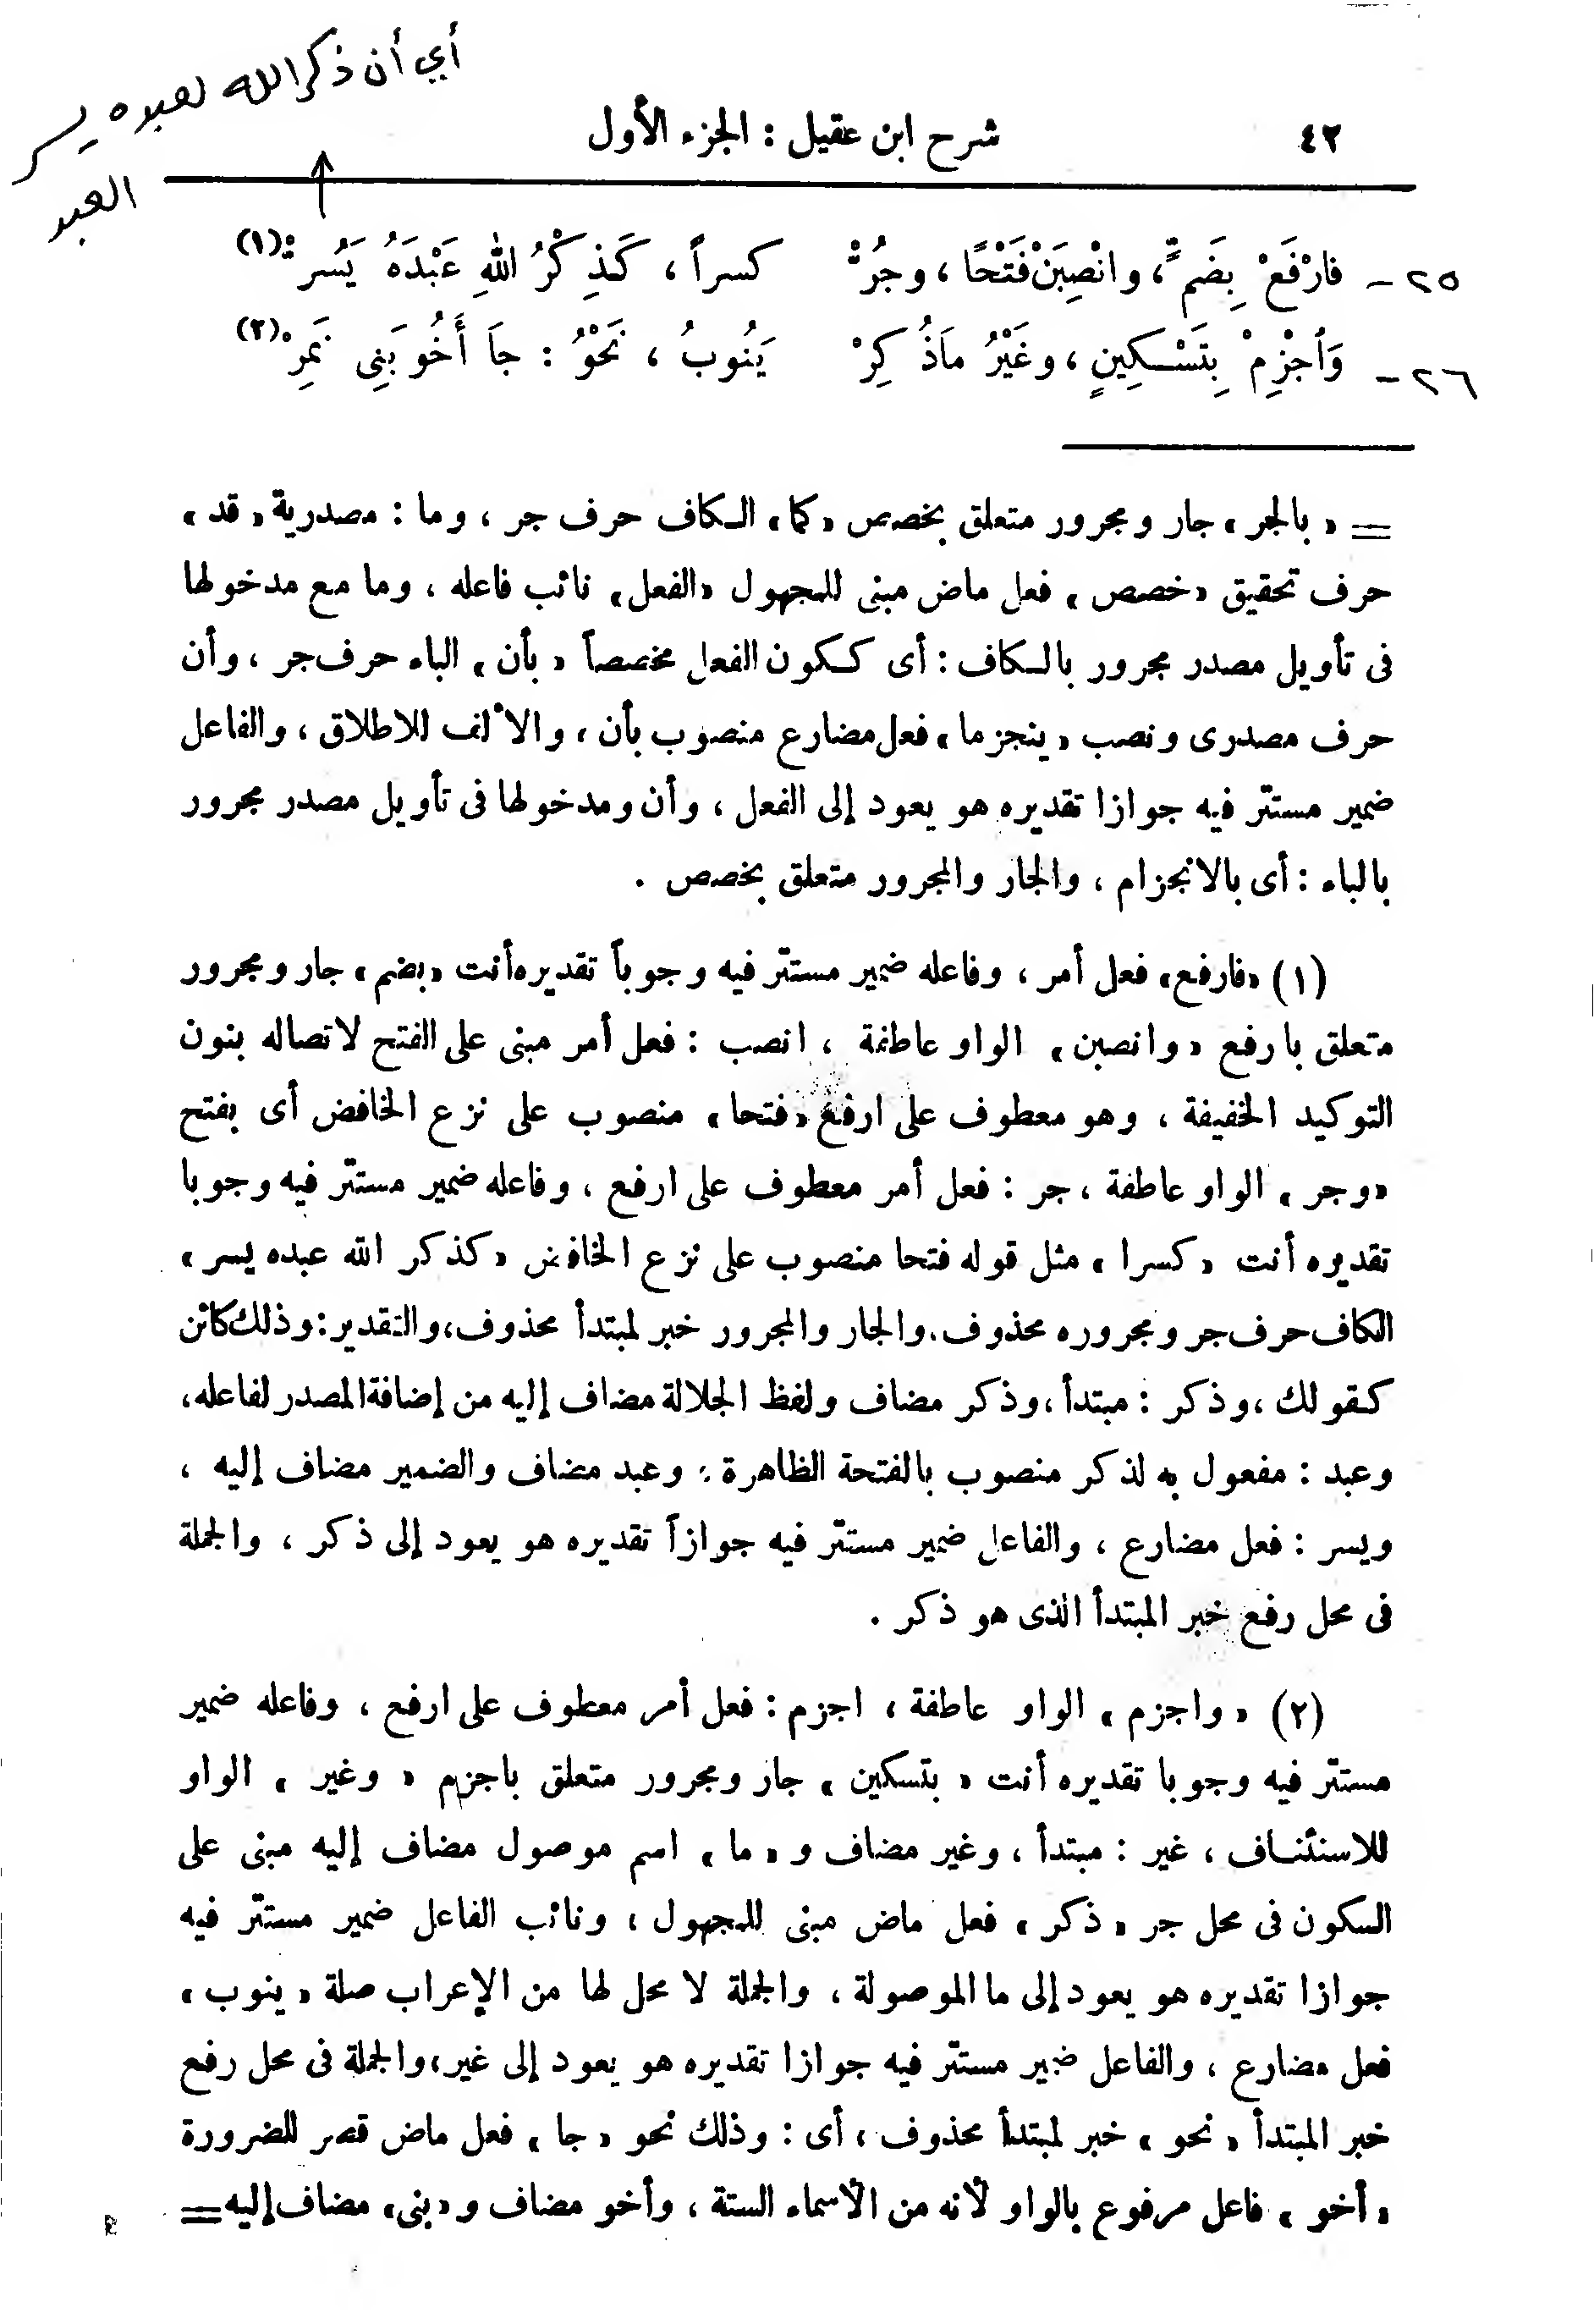 أي أن ذكر الله لعبده يسر
العبد
٤٢
شرح ابن عقيل : الجزء الأول
٢٥ - فارْفَعْ بِضَمٍّ، وانْصِبَنْ فَتْحًا، وجُرّْ كسراً ، كَذِكْرُ اللهِ عَبْدَهُ يَسُرّْ (١)
٢٦ - وَاُجْزِمْ بِتَسْكِينٍ، وغَيْرُ مَاذُ كِرْ يَنُوبُ ، نَحْوُ : جَا أَخُو بَنِى نَمِرْ (٢)
= « بالجر » جار ومجرور متعلق بخصص « كما » الكاف حرف جر ، وما : مصدرية « قد »
حرف تحقيق « خصص » فعل ماض مبنى للمجهول « الفعل » نائب فاعله ، وما مع مدخولها
فى تأويل مصدر مجرور بالكاف : أى ككون الفعل مخصصاً « بأن » الباء حرف جر ، وأن
حرف مصدرى ونصب « ينجزما » فعل مضارع منصوب بأن ، والألف للاطلاق ، والفاعل
ضمير مستتر فيه جوازا تقديره هو يعود إلى الفعل ، وأن ومدخولها فى تأويل مصدر مجرور
بالباء : أى بالانجزام ، والجار والمجرور متعلق بخصص .
(١) « فارفع » فعل أمر ، وفاعله ضمير مستتر فيه وجوباً تقديره أنت « بضم » جار ومجرور
متعلق بارفع « وانصبن » الواو عاطفة ، انصب : فعل أمر مبنى على الفتح لاتصاله بنون
التوكيد الخفيفة ، وهو معطوف على ارفع « فتحا » منصوب على نزع الخافض أى بفتح
« وجر » الواو عاطفة ، جر : فعل أمر معطوف على ارفع ، وفاعله ضمير مستتر فيه وجوبا
تقديره أنت « كسرا » مثل قوله فتحا منصوب على نزع الخافض « كذكر الله عبده يسر »
الكاف حرف جر ومجروره محذوف، والجار والمجرور خبر لمبتدأ محذوف، والتقدير : وذلك كائن
كقولك ، وذكر : مبتدأ ، وذكر مضاف ولفظ الجلالة مضاف إليه من إضافة المصدر لفاعله،
وعبد : مفعول به لذكر منصوب بالفتحة الظاهرة ، وعبد مضاف والضمير مضاف إليه ،
ويسر : فعل مضارع ، والفاعل ضمير مستتر فيه جوازاً تقديره هو يعود إلى ذكر ، والجملة
فى محل رفع خبر المبتدأ الذى هو ذكر .
(٢) « واجزم » الواو عاطفة ، اجزم : فعل أمر معطوف على ارفع ، وفاعله ضمير
مستتر فيه وجوبا تقديره أنت « بتسكين » جار ومجرور متعلق باجزم « وغير » الواو
للاستئناف ، غير : مبتدأ ، وغير مضاف و « ما » اسم موصول مضاف إليه مبنى على
السكون فى محل جر « ذكر » فعل ماض مبنى للمجهول ، ونائب الفاعل ضمير مستتر فيه
جوازا تقديره هو يعود إلى ما الموصولة ، والجملة لا محل لها من الإعراب صلة « ينوب »
فعل مضارع ، والفاعل ضمير مستتر فيه جوازا تقديره هو يعود إلى غير، والجملة فى محل رفع
خبر المبتدأ « نحو » خبر لمبتدأ محذوف ، أى : وذلك نحو « جا » فعل ماض قصر للضرورة
« أخو » فاعل مرفوع بالواو لأنه من الأسماء الستة ، وأخو مضاف و « بنى » مضاف إليه =